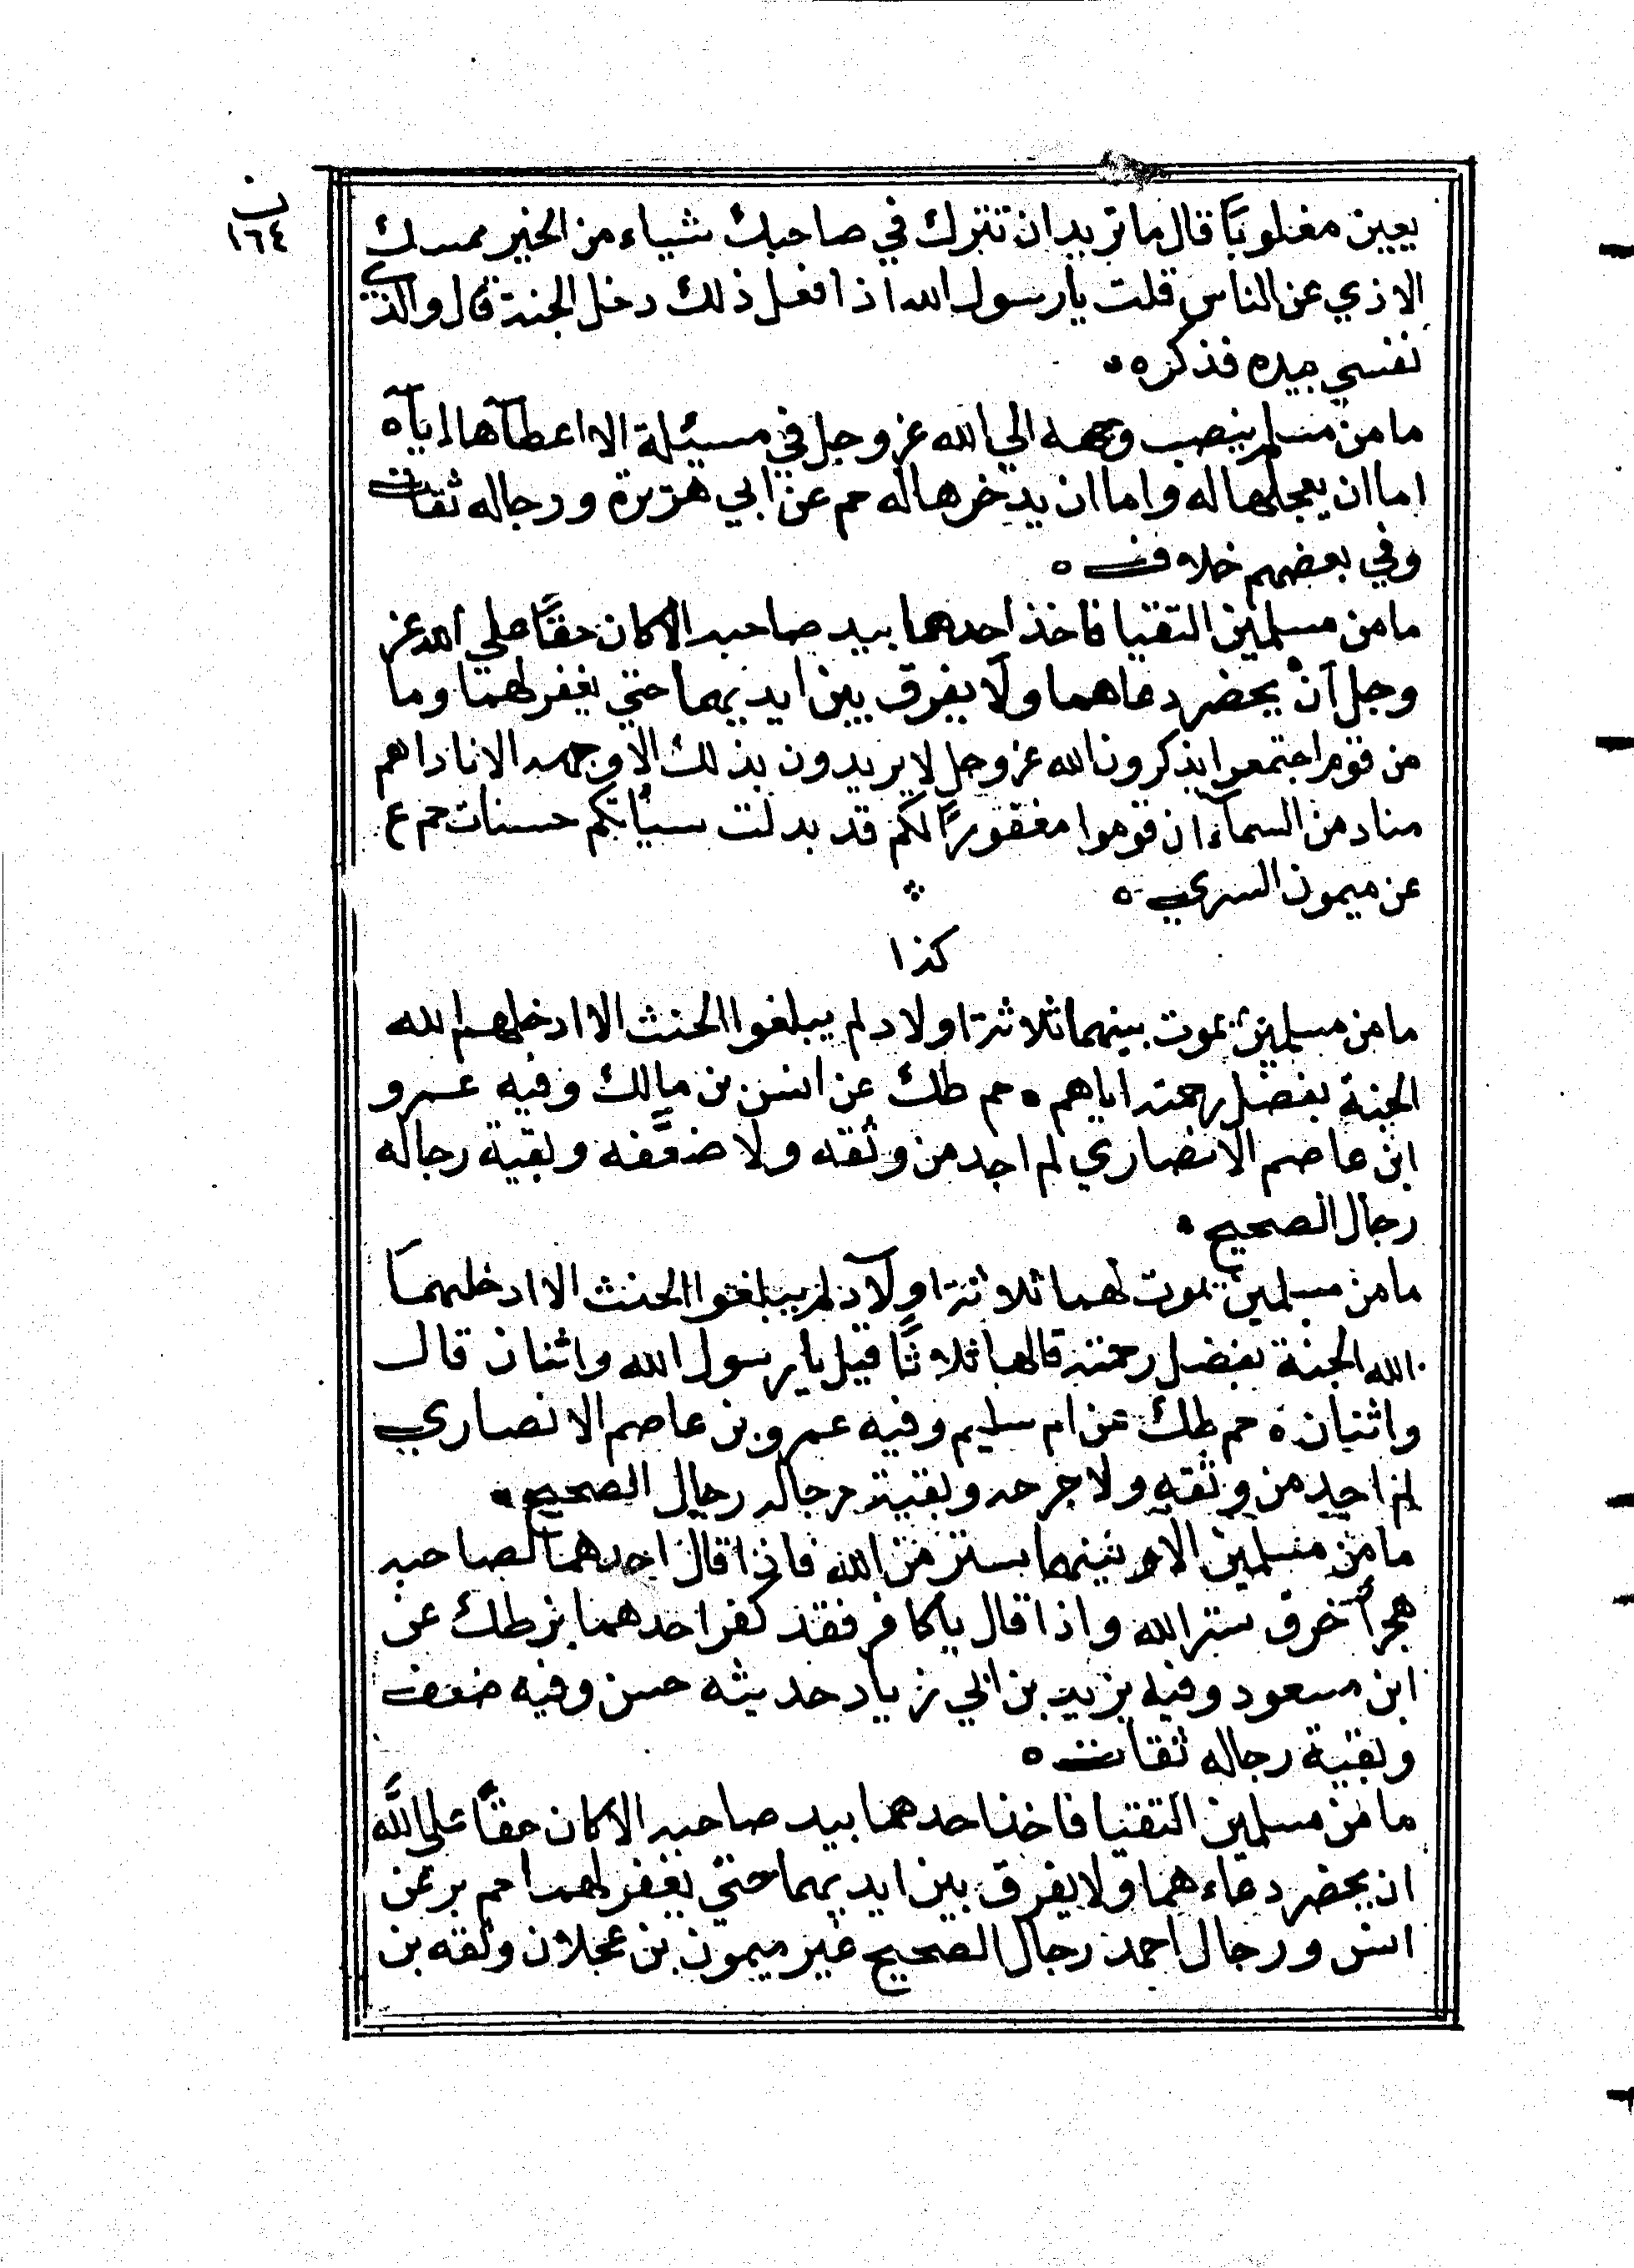 ن
١٦٤
يعين مغلوبًا قال ما تريد ان تترك في صاحبك شياء من الخير يمسك
الاذي عن الناس قلت يا رسول الله اذا فعل ذلك دخل الجنة قال والذي
نفسي بيده فذكره
ما من مسلم ينصب وجهه الي الله عز وجل في مسئلة الا اعطآها ايآه
اما ان يعجلها له واما ان يدخرها له حم عن ابي هريرة ورجاله ثقات
وفي بعضهم خلاف ه
ما من مسلمين التقيا فاخذ احدهما بيد صاحبه الا كان حقًا علي الله عز
وجل ان يحضر دعاهما ولا يفرق بين ايديهما حتي يغفر لهما وما
من قوم اجتمعوا يذكرون الله عز وجل لا يريدون بذلك الا وجهه الا ناداهم
مناد من السمآء ان قوموا مغفورًا لكم قد بدلت سيأتكم حسنات حم ع
عن ميمون السري ه
كذا
ما من مسلمين يموت بينهما ثلاثة اولاد لم يبلغوا الحنث الا ادخلهم الله
الجنة بفضل رحمته اياهم ه حم طك عن انس بن مالك وفيه عمرو
ابن عاصم الانصاري لم اجد من وثقه ولا ضعفه وبقية رجاله
رجال الصحيح
ما من مسلمين يموت لهما ثلاثة اولآد لم يبلغوا الحنث الا ادخلهما
الله الجنة بفضل رحمته قالها ثلاثًا قيل يا رسول الله واثنان قال
واثنان ه حم طك عن ام سليم وفيه عمرو بن عاصم الانصاري
لم اجد من وثقه ولا جرحه وبقية رجاله رجال الصحيح
ما من مسلمين الا وبينهما ستر من الله فاذا قال احدهما لصاحبه
هجرًا خرق ستر الله واذا قال يا كافر فقد كفر احدهما بز طك عن
ابن مسعود وفيه يزيد بن ابي زياد حديثه حسن وفيه ضعف
وبقية رجاله ثقات ه
ما من مسلمين التقيا فاخذ احدهما بيد صاحبه الا كان حقًا علي اللّه
ان يحضر دعاءهما ولا يفرق بين ايديهما حتي يغفر لهما حم بز عن
انس ورجال احمد رجال الصحيح غير ميمون بن عجلان وثقه بن